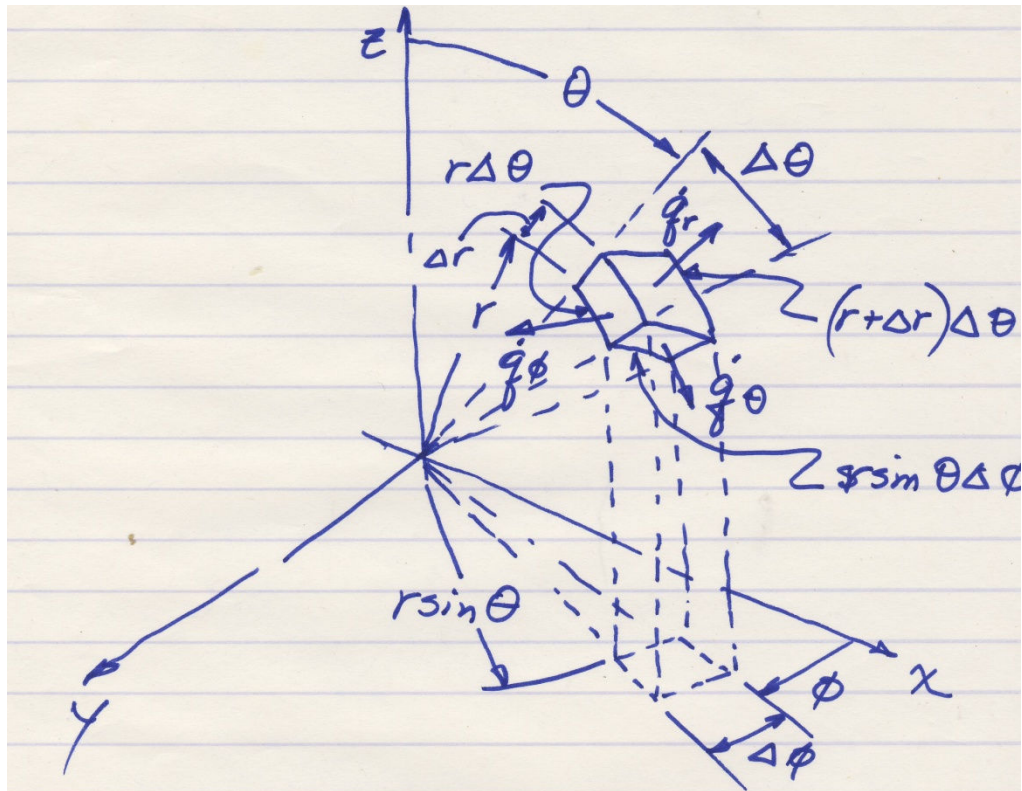 z
θ
rΔθ
Δθ
q̇r
Δr
r
(r+Δr)Δθ
q̇ϕ
q̇θ
rsin θΔϕ
rsin θ
x
ϕ
y
Δϕ